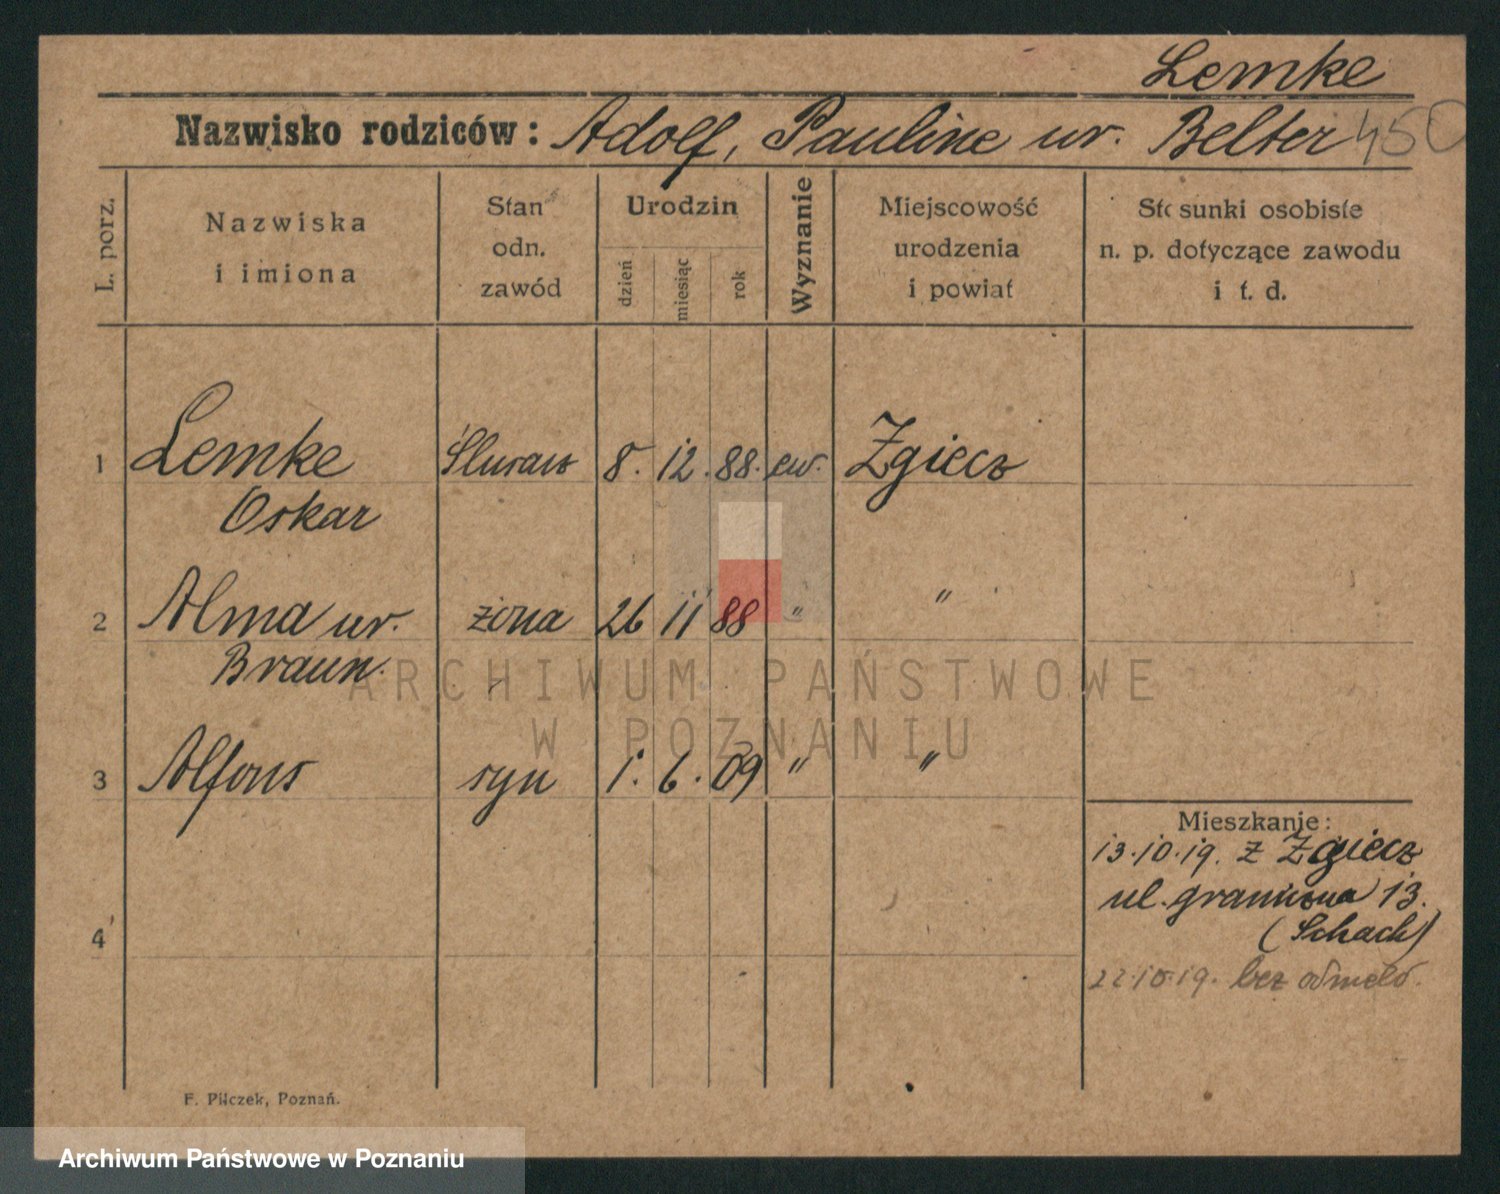 Lemke
Nazwisko rodziców: Adolf, Pauline ur. Belter 450
L. porz.
Nazwiska
i imiona
Stan
odn.
zawód
Urodzin
dzień
miesiąc
rok
Wyznanie
Miejscowość
urodzenia
i powiat
Stosunki osobiste
n. p. dotyczące zawodu
i t. d.
1 Lemke Ślusarz 8. 12. 88. ew. Zgierz
Oskar
2 Alma ur. żona 26 11 88 " "
Braun.
3 Alfons syn 1. 6. 09 " "
4
Mieszkanie:
13.10.19. z Zgierz
ul. graniczna 13.
(Schach)
22.10.19. bez odmeld.
F. Pilczek, Poznań.
ARCHIWUM PAŃSTWOWE
W POZNANIU
Archiwum Państwowe w Poznaniu